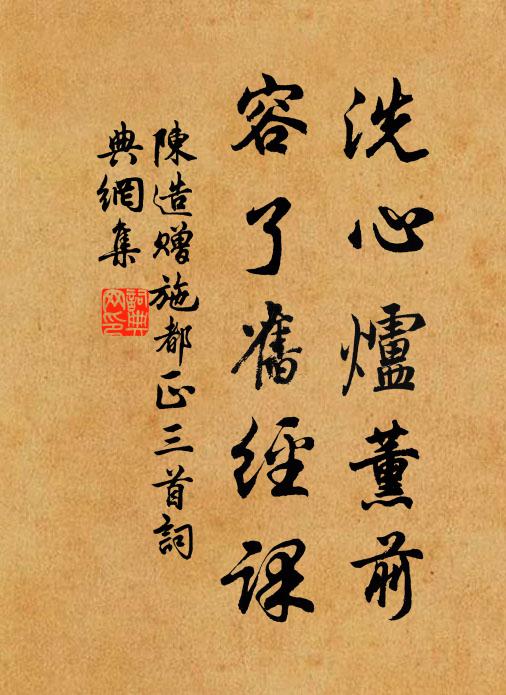 洗心爐薰前
容了舊經課
陳造贈施都正三首詞
典網集
詞典網印